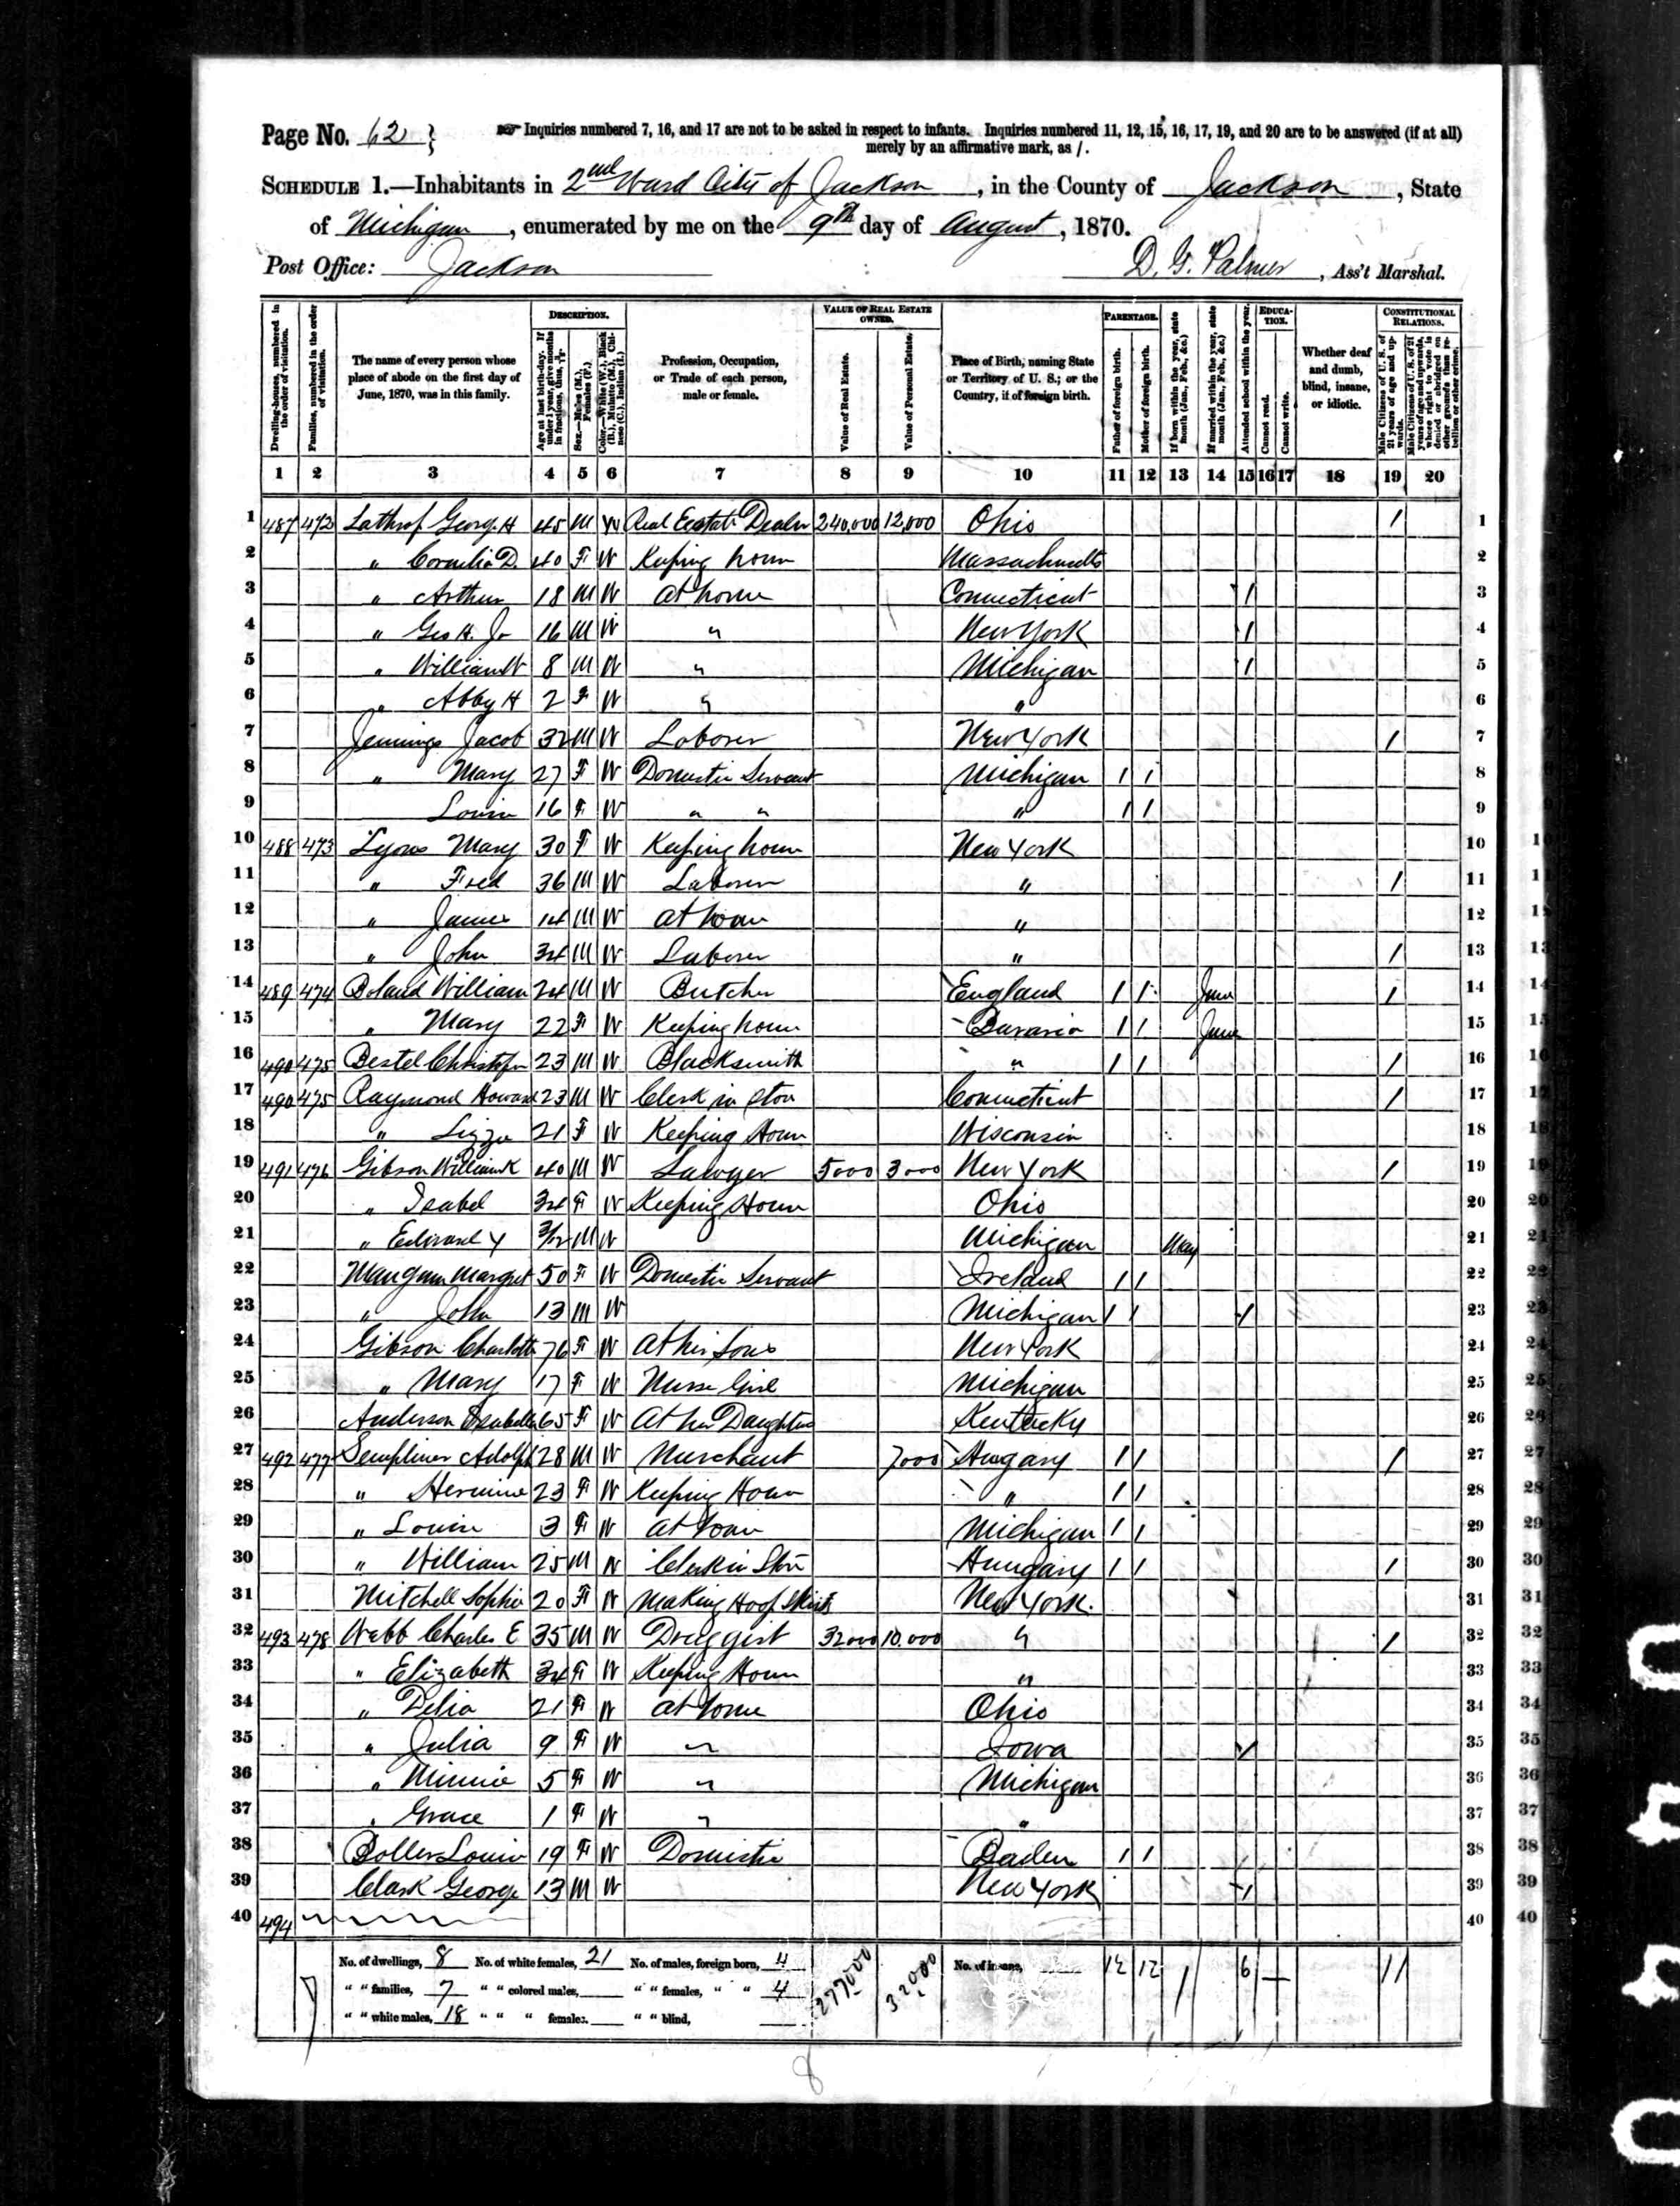 Page No. 62 }
☞ Inquiries numbered 7, 16, and 17 are not to be asked in respect to infants. Inquiries numbered 11, 12, 15, 16, 17, 19, and 20 are to be answered (if at all)
merely by an affirmative mark, as /.
SCHEDULE 1.—Inhabitants in 2nd Ward City of Jackson, in the County of Jackson, State
of Michigan, enumerated by me on the 9th day of August, 1870.
Post Office: Jackson D. G. Palmer, Ass't Marshal.
Dwelling-houses, numbered in the order of visitation.
Families, numbered in the order of visitation.
The name of every person whose place of abode on the first day of June, 1870, was in this family.
DESCRIPTION.
Age at last birth-day. If under 1 year, give months in fractions, thus, 3/12
Sex.—Males (M.), Females (F.)
Color.—White (W.), Black (B.), Mulatto (M.), Chinese (C.), Indian (I.)
Profession, Occupation, or Trade of each person, male or female.
VALUE OF REAL ESTATE OWNED.
Value of Real Estate.
Value of Personal Estate.
Place of Birth, naming State or Territory of U. S.; or the Country, if of foreign birth.
PARENTAGE.
Father of foreign birth.
Mother of foreign birth.
If born within the year, state month (Jan., Feb., &c.)
If married within the year, state month (Jan., Feb., &c.)
Attended school within the year.
EDUCATION.
Cannot read.
Cannot write.
Whether deaf and dumb, blind, insane, or idiotic.
CONSTITUTIONAL RELATIONS.
Male Citizens of U. S. of 21 years of age and upwards.
Male Citizens of U. S. of 21 years of age and upwards, whose right to vote is denied or abridged on other grounds than rebellion or other crime.
1 2 3 4 5 6 7 8 9 10 11 12 13 14 15 16 17 18 19 20
1 487 472 Lathrop Georg. H 45 M W Real Eestate Dealer 240,000 12,000 Ohio / 1
2 " Cornelia D. 40 F W Keeping house Massachusetts 2
3 " Arthur 18 M W at home Connecticut / 3
4 " Geo H. Jr 16 M W " New York / 4
5 " William W 8 M W " Michigan / 5
6 " Abby H 2 F W " " 6
7 Jennings Jacob 32 M W Laborer New York / 7
8 " Mary 27 F W Domestic Servant Michigan / / 8
9 Louisa 16 F W " " " / / 9
10 488 473 Lyons Mary 30 F W Keeping house New York 10
11 " Fred 36 M W Laborer " / 11
12 " James 14 M W at home " 12
13 " John 34 M W Laborer " / 13
14 489 474 Boland William 24 M W Butcher England / / June / 14
15 " Mary 22 F W Keeping house Bavaria / / June 15
16 490 475 Bestel Christopher 23 M W Blacksmith " / / / 16
17 490 475 Raymond Howard 23 M W Clerk in Store Connecticut / 17
18 " Lizzie 21 F W Keeping House Wisconsin 18
19 491 476 Gibson William K 40 M W Lawyer 5000 3000 New York / 19
20 " Isabel 34 F W Keeping House Ohio 20
21 " Edward Y 3/12 M W Michigan May 21
22 Mangum Margret 50 F W Domestic Servant Ireland / / 22
23 " John 13 M W Michigan / / / 23
24 Gibson Charlotte 76 F W At her Sons New York 24
25 " Mary 17 F W Nurse Girl Michigan 25
26 Anderson Isabella 65 F W At her Daughters Kentucky 26
27 492 477 Sempliner Adolph 28 M W Merchant 7000 Hugary / / / 27
28 " Hermine 23 F W Keeping House " / / 28
29 " Louisa 3 F W at home Michigan / / 29
30 " William 25 M W Clerk in Store Hungary / / / 30
31 Mitchell Sophie 20 F W Making Hoop Skirts New York. 31
32 493 478 Webb Charles E 35 M W Druggist 32000 10.000 " / 32
33 " Elizabeth 34 F W Keeping House " 33
34 " Delia 21 F W at home Ohio 34
35 " Julia 9 F W " Iowa / 35
36 " Minnie 5 F W " Michigan 36
37 " Grace 1 F W " " 37
38 Boller Louisa 19 F W Domestic Baden / / 38
39 Clark George 13 M W New York / 39
40 494 40
No. of dwellings, 8 No. of white females, 21 No. of males, foreign born, 4 277000 32000 No. of insane, 12 12 / 6 — 11
" " families, 7 " " colored males, " " females, " " 4
" " white males, 18 " " " females, " " blind,
8